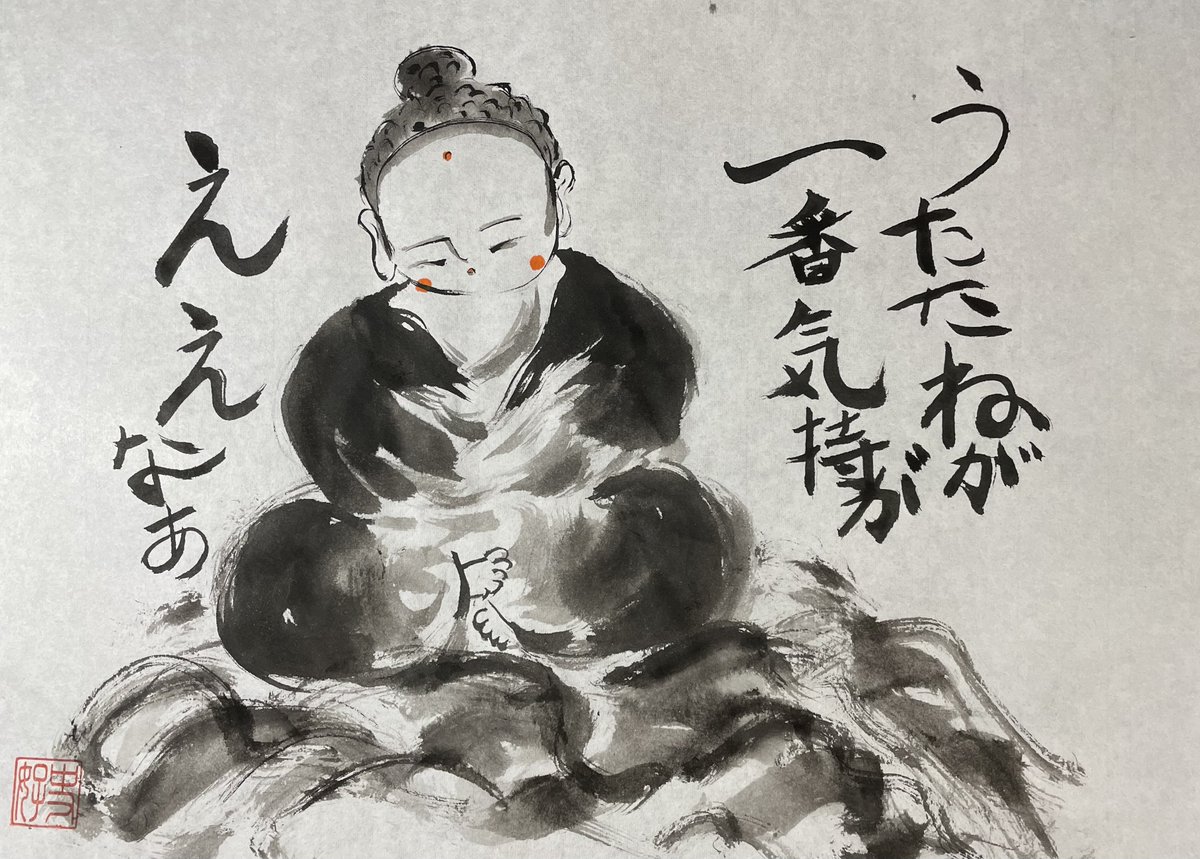 うたたねが
一番気持が
ええなあ